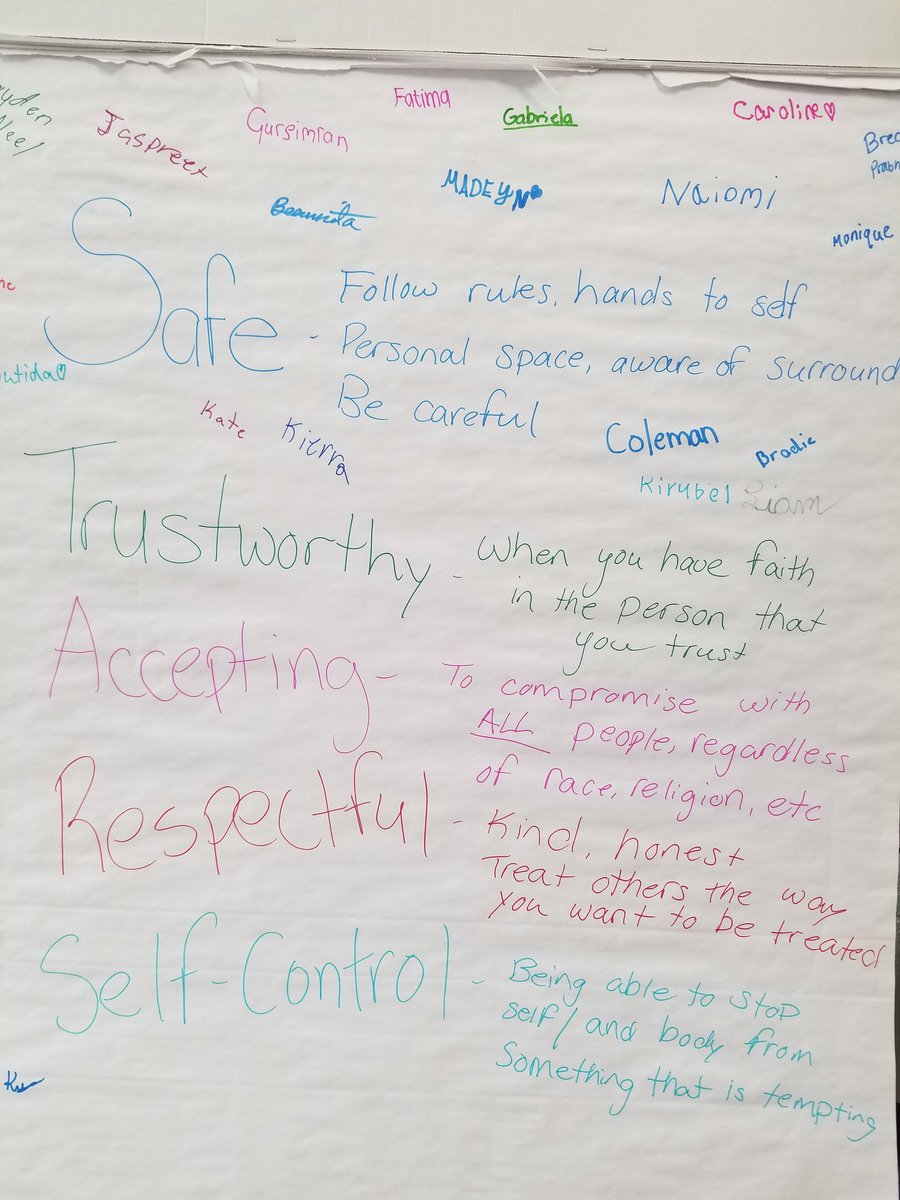 yden
Neel
Jaspreet
Gursimran
Fatima
Gabriela
Caroline♡
Bre
Prabh
MADEYN
Naiomi
Monique
Safe - Follow rules, hands to self
Personal space, aware of surround
Be careful
utida♡
Kate
Kierra
Coleman
Brodie
Kirubel
Liam
Trustworthy - When you have faith
in the person that
you trust
Accepting - To compromise with
ALL people, regardless
of race, religion, etc
Respectful - Kind, honest
Treat others the way
you want to be treated
Self-Control - Being able to stop
self/and body from
Something that is tempting